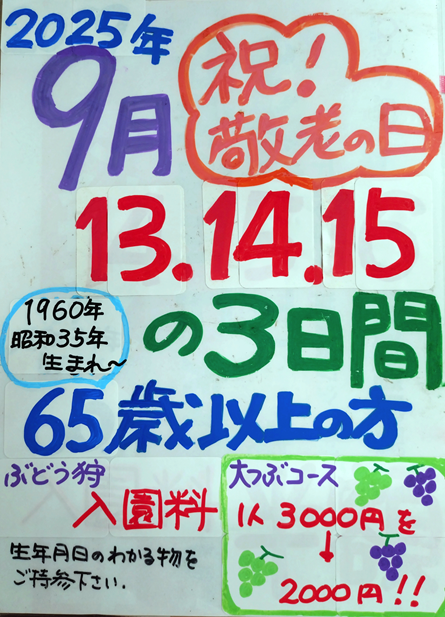 2025年
祝!
敬老の日
9月
13.14.15
1960年
昭和35年
生まれ〜
の3日間
65歳以上の方
ぶどう狩
入園料
生年月日のわかる物を
ご持参下さい.
大つぶコース
1人 3000円を
↓
2000円!!